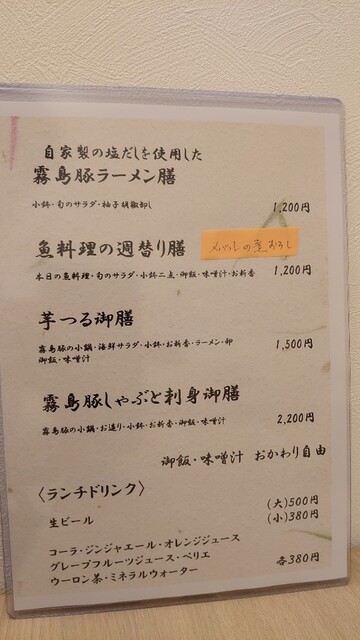 自家製の塩だしを使用した
霧島豚ラーメン膳
小鉢・旬のサラダ・柚子胡椒卸し 1,200円
魚料理の週替り膳 メバルの煮おろし
本日の魚料理・旬のサラダ・小鉢二点・御飯・味噌汁・お新香 1,200円
芋つる御膳
霧島豚の小鍋・海鮮サラダ・小鉢・お新香・ラーメン・卵 1,500円
御飯・味噌汁
霧島豚しゃぶと刺身御膳
霧島豚の小鍋・お造り・小鉢・お新香・御飯・味噌汁 2,200円
御飯・味噌汁 おかわり自由
〈ランチドリンク〉
(大)500円
生ビール (小)380円
コーラ・ジンジャエール・オレンジジュース
グレープフルーツジュース・ペリエ 各380円
ウーロン茶・ミネラルウォーター